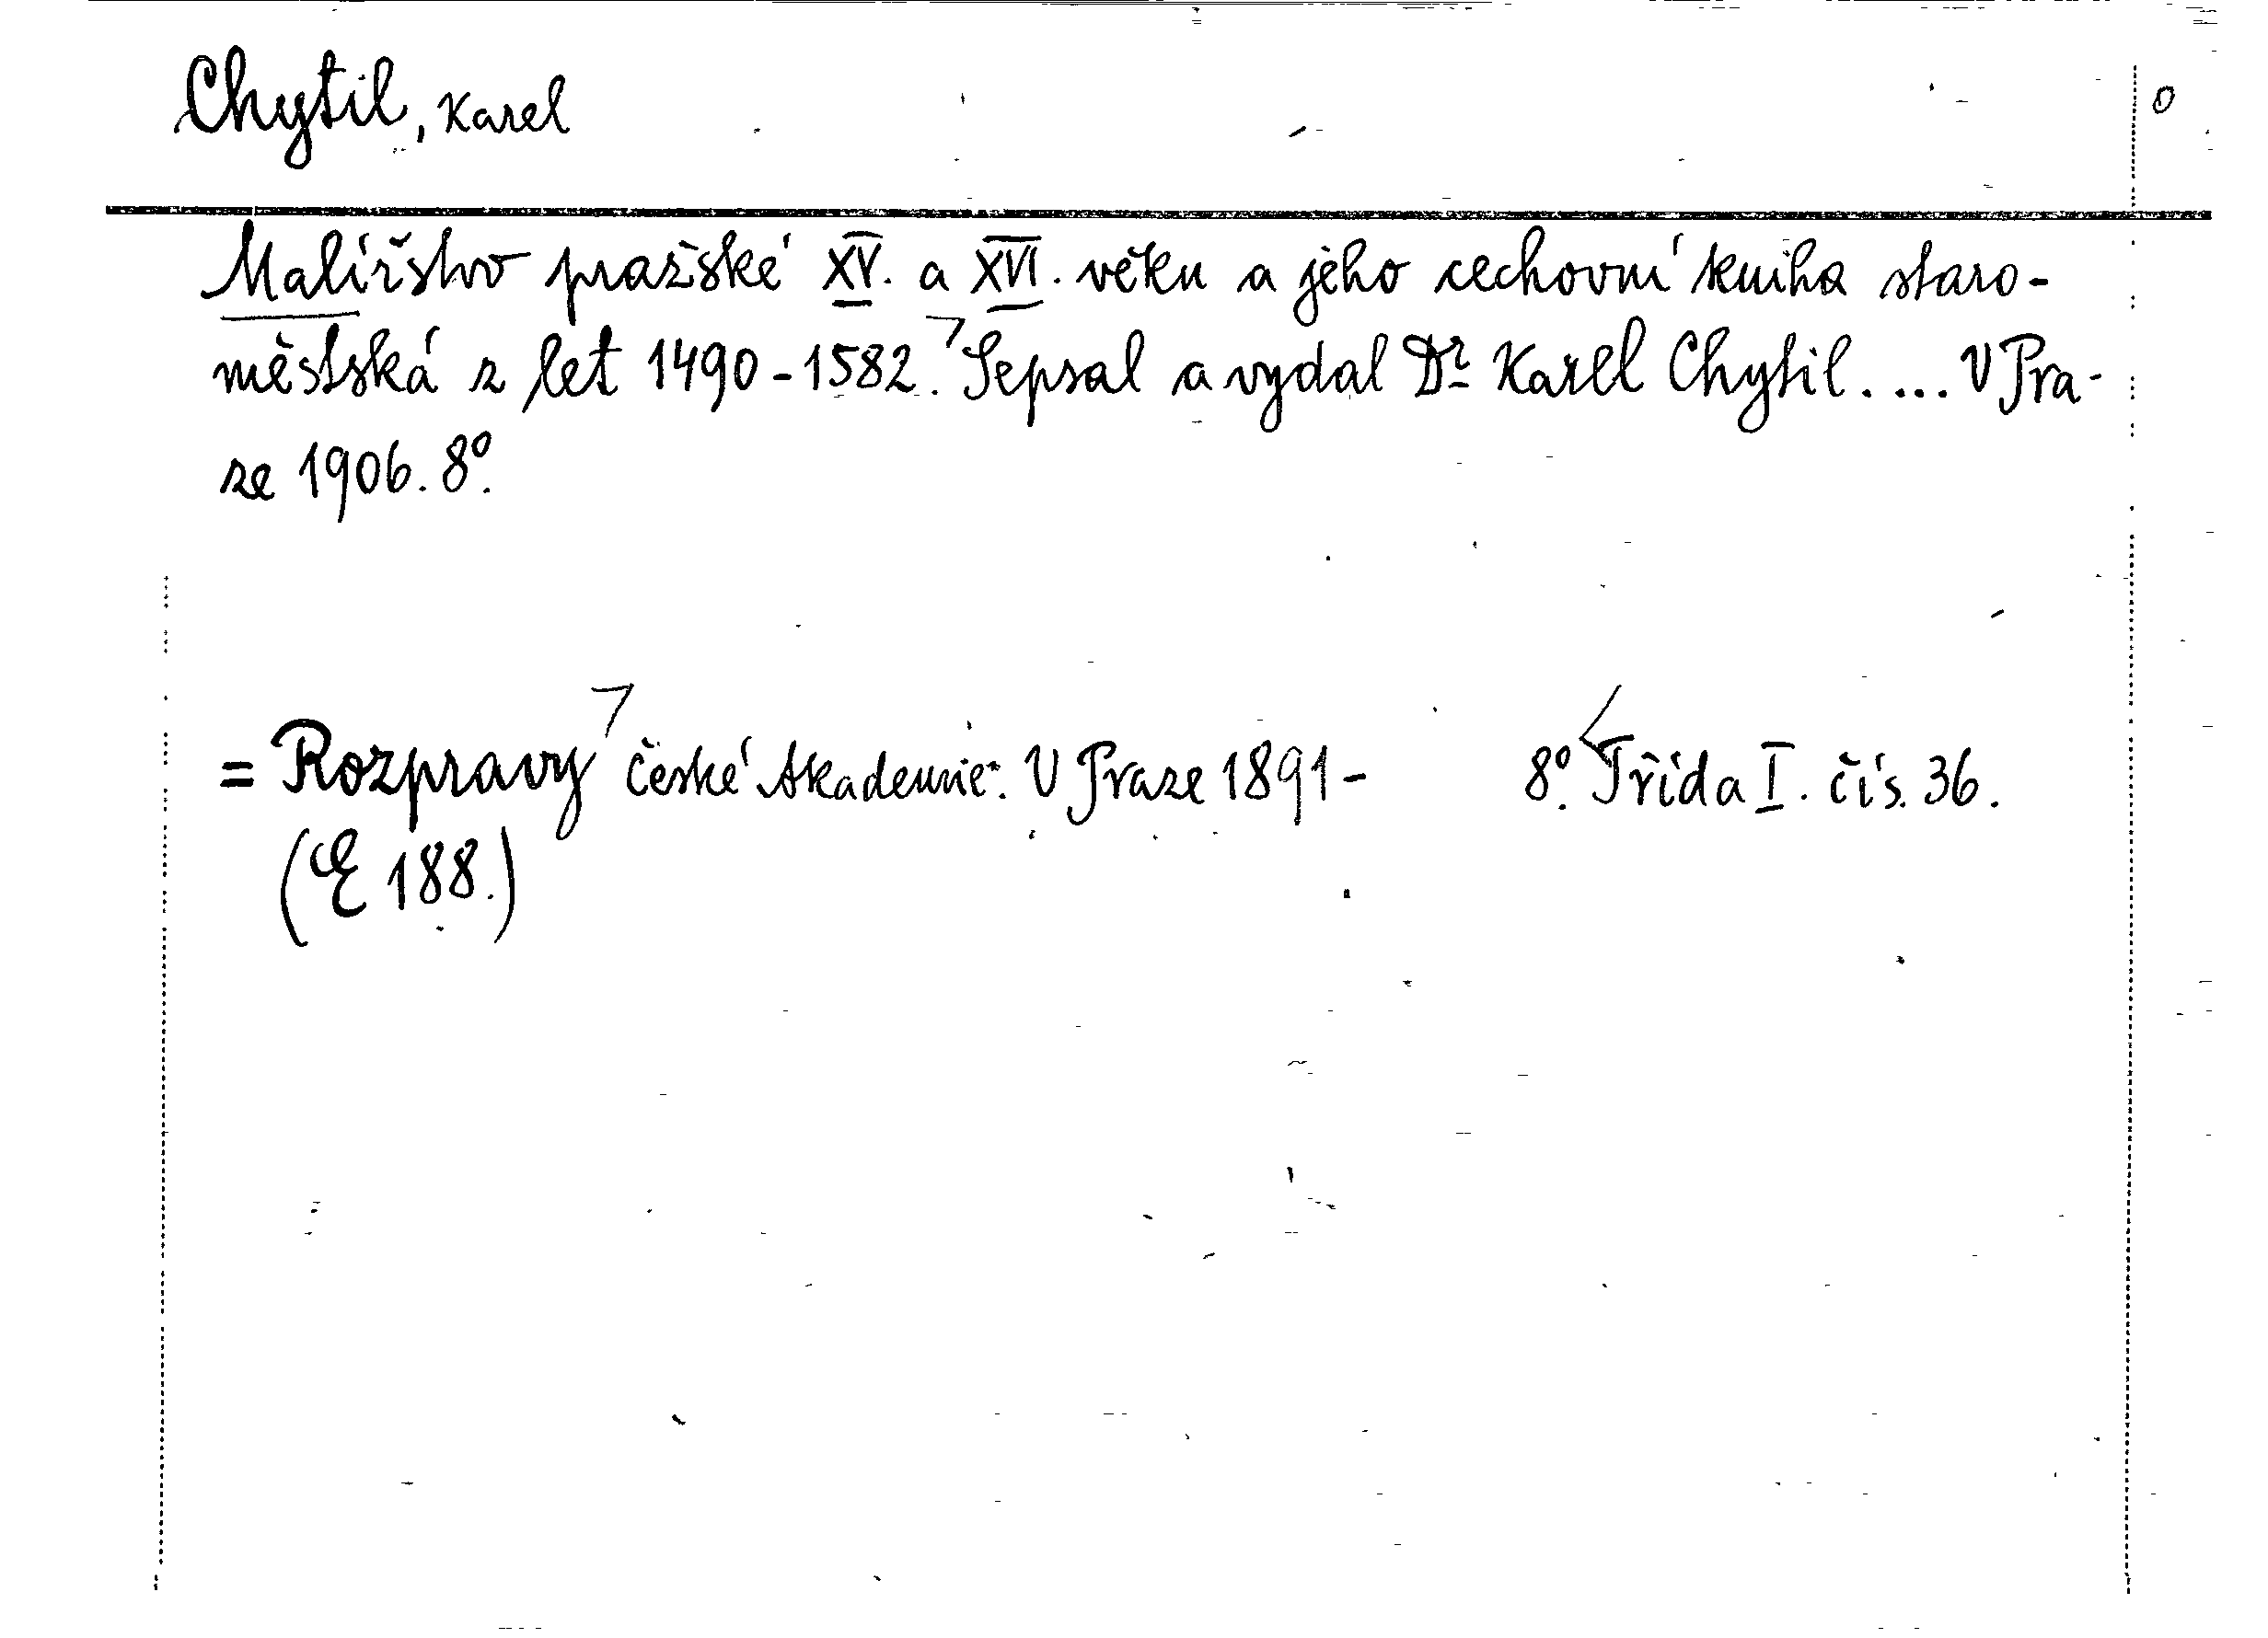 Chytil, Karel
0
Malířstvo pražské XV. a XVI. věku a jeho cechovní kniha staro-
městská z let 1490-1582. Sepsal a vydal Dr Karel Chytil. ... V Pra-
ze 1906. 8º.
= Rozpravy České Akademie. V Praze 1891- 8º. Třída I. čís. 36.
(E 188.)